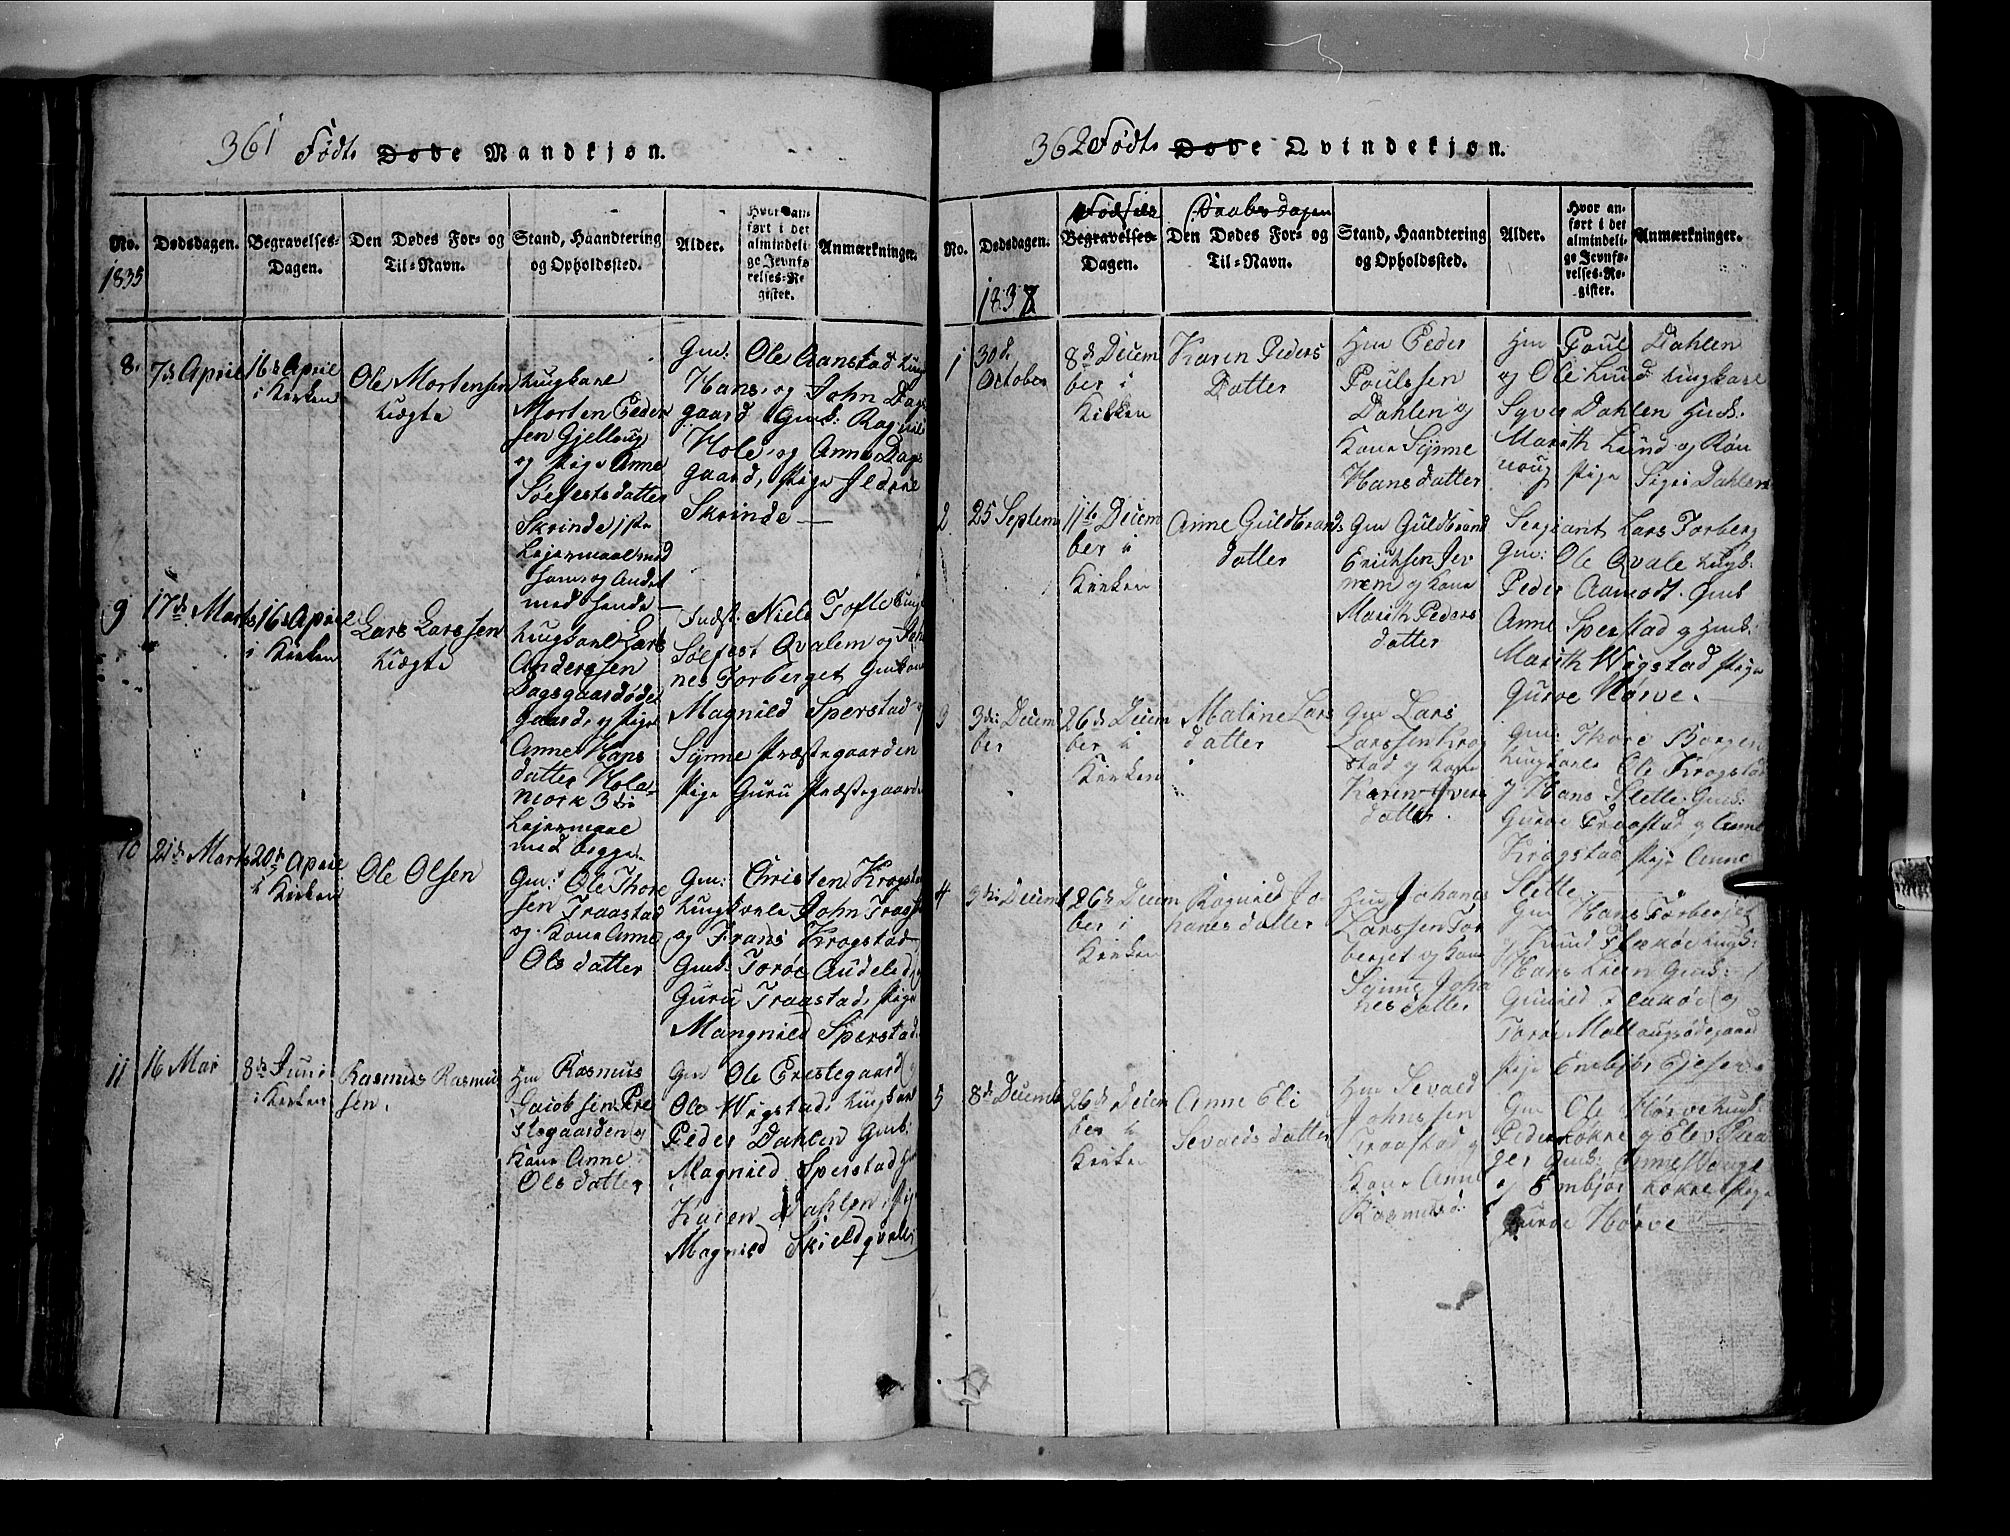 361 Født. Døde Mandkjøn.
No.
Dødsdagen.
Begravelses-
Dagen.
Den Dødes For- og
Til-Navn.
Stand, Haandtering
og Opholdssted.
Alder.
Hvor an-
ført i det
almindeli-
ge Jevnfø-
relses-Re-
gister.
Anmærkninger.
1835
8.
7de April
16de April
i Kirken
Ole Mortensen
uægte
Ungkarl
Morten Peder
sen
og Pige Anne
Solfestsdatter
Skrinde 1ste
Leiermaal med
ham og Andet
med hende
Gmd: Ole Aanstad Ung
Hans og John Dags
gaard Gmk: Ragnild
Hole, og Anne Dags
gaard, Pige
Skrinde
9
17de Marts
16de April
i Kirken
Lars Larssen
uægte
Ungkarl Lars
Anderssen
Dagsgaardødel
gaard, og Pige
Anne Hans
datter Hola-
mork 3die
Leiermaal
med begge.
Indst: Niels Tofte Ungk
Solfest Qvalem og Joha
nes Forberget Gmkone
Magnild Sperstad og
Synne Præstegaarden
Pige Guru Præstegaarden
10
21de Marts
20de April
i Kirken
Ole Olsen
Gm: Ole Thore
sen Traastad
og Kone Anne
Olsdatter
Gm: Christen Krogstad
Ungkarle John Traastad
og Frans Krogstad
Gmk: Toroe
Guru Traastad, Pige
Mangnild Sperstad
11
16 Mai
8de Juni
i Kirken
Rasmus Rasmus
sen.
Hm Rasmus
Jacobsen Præ
stegaarden og
Kone Anne
Olsdatter
Gm Ole Prestegaard og
Ole Wigstad, Ungkarl
Peder Dahlen Gmk:
Magnild Sperstad
Karen Dahlen, Pige
Magnild Skieldqvale
362 Født. Døde Qvindekjøn.
No.
Dødsdagen.
Fødsels
Begravelses-
Dagen.
Daabsdagen
Den Dødes For- og
Til-Navn.
Stand, Haandtering
og Opholdssted.
Alder.
Hvor an-
ført i det
almindeli-
ge Jevnfø-
relses-Re-
gister.
Anmærkninger.
1837
1
30de
October
8de Decem
ber i
Kirken
Karen Peders
Datter
Hm Peder
Poulssen
Dahlen og
Kone Synne
Hansdatter
Hm Poul Dahlen
og Ole Lund Ungkarl
Syver Dahlen Hmk.
Marith Lund og Røn
noug Pige Sigri Dahlen
2
25 Septem
11te Decem
ber i
Kirken
Anne Guldbrands
datter
Gm Guldbrand
Erichsen Jev
nem og Kone
Marith Peders
datter
Sergiant Lars Forberg
Gm: Ole Qvale Ungk.
Peder Aamodt. Gmk
Anne Sperstad og Hmk.
Marith Wigstad Pige
Guroe Hørve.
3
3die Decem
ber
26de Decem
ber i
Kirken
Maline Lars
datter
Gm Lars
Larssen Krog
stad og Kone
Karen Ivers
datter.
Gm: Thore Borgen
Ungkarle Ole Krogstad
og Hans Slette Gmk:
Guroe Traastad og Anne
Krogstad Pige Anne
Slette.
4
9de Decemb
26de Decem
ber i
Kirken
Ragnild Jo-
hanesdatter
Hm Johanes
Larssen For
berget og Kone
Synne Joha
nesdatter
Gm Hans Forberget
og Knud Flækøe Ungk:
Hans Lien Gmk:
Gunild Flækøe og
Toroe Mallaugsødegaard
Pige
5
8de Decemb
26de Decem
ber i
Kirken
Anne Eli
Sevaldsdatter
Hm Sevald
Johnssen
Traastad og
Kone Anne
Rasmusd:
Gm Ole Hørve Ungk:
Peder Kokne og Elev Pra
ger Gmk: Anne Wange
og Embjør Kokne Pige
Guroe Hørve